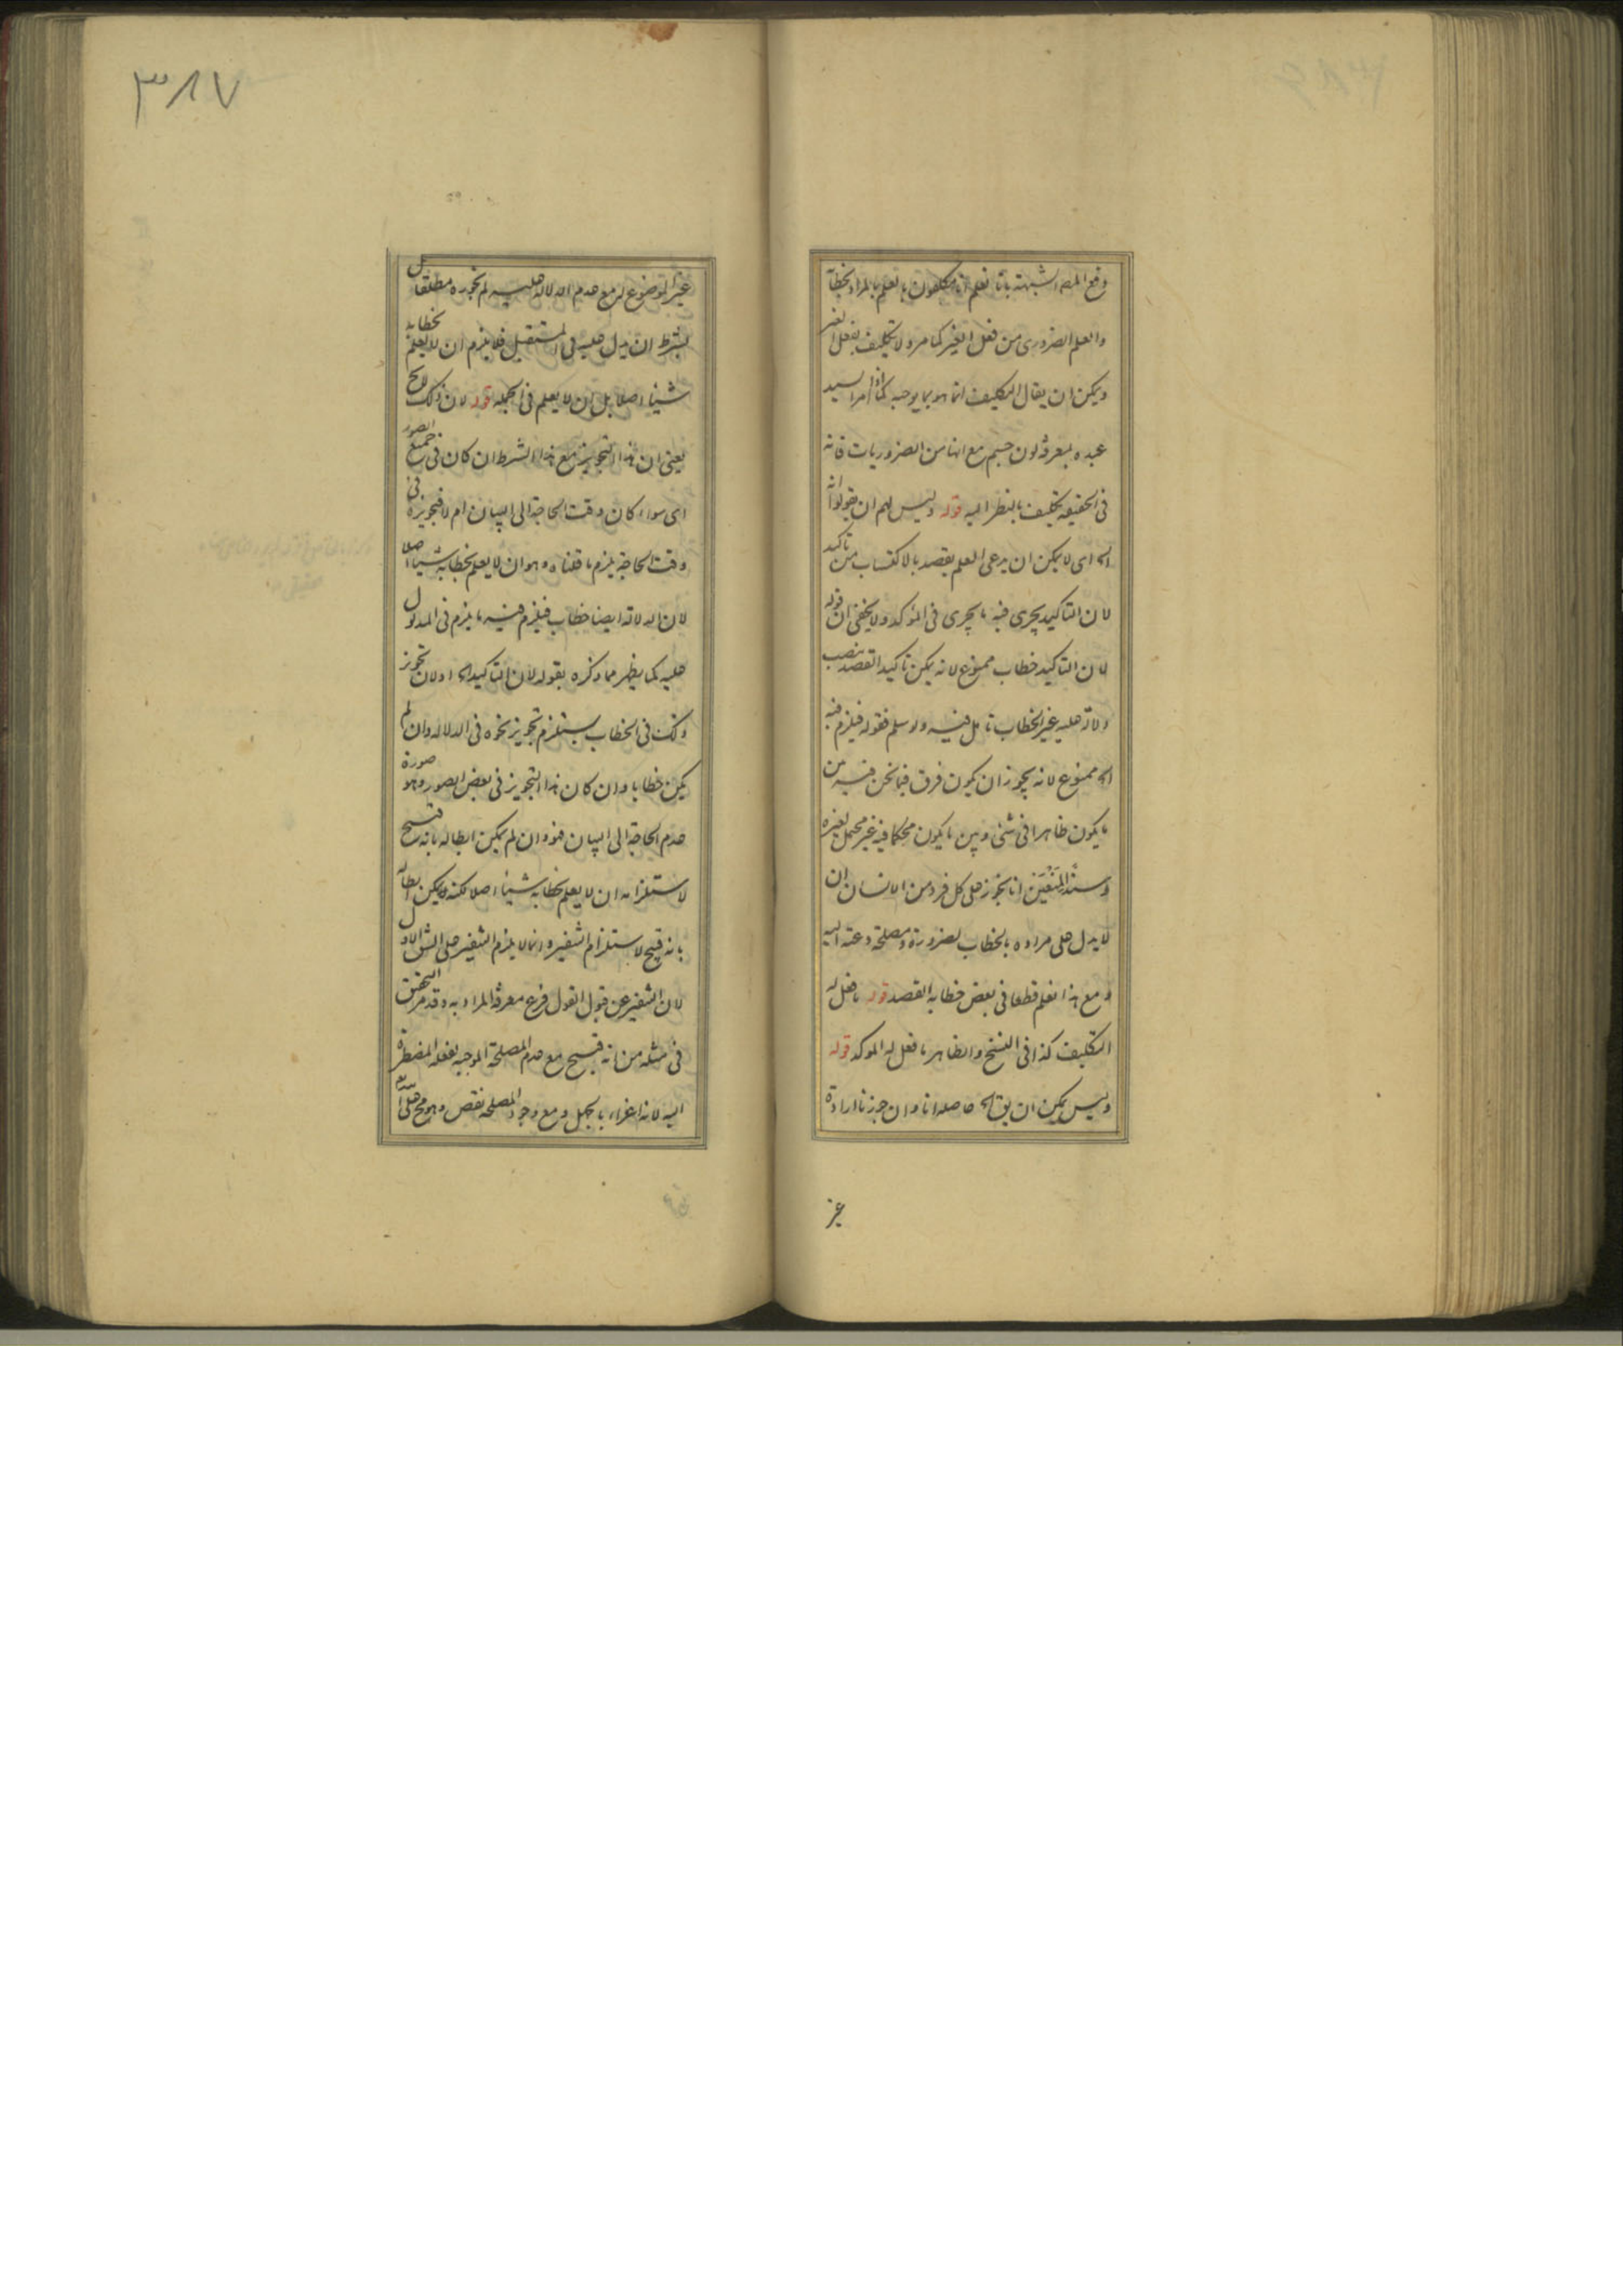 دفع المصـ الشبهة بانا نعلم انا مكلفون بان نعلم بالمراد بخطابه
والعلم الضرورى من فعل الغير كما مر ولا تكليف بفعل الغير
ويمكن ان يقال التكليف انما هو بما يوجبه كما اذا امر السيد
عبده بمعرفة لون جسم مع انها من الضروريات فانه
فى الحقيقه تكليف بالنظر اليه قوله وليس لهم ان يقولوا انه
الخ اى لا يمكن ان يدعى العلم بقصده بالاكتساب من تاكيد
لان التاكيد يجرى فيه ما يجرى فى المؤكد ولا يخفى ان قوله
لان التاكيد خطاب ممنوع لانه يمكن تاكيد القصد بنصب
دلالة عليه غير الخطاب تامل فيه ولو سلم فقوله فيلزم فيه
الخ ممنوع لانه يجوز ان يكون فرق فيما نحن فيه بين
ما يكون ظاهرا فى شئ وبين ما يكون محكما فيه غير محتمل لغيره
وسند المنعين انا نجوز على كل فرد من الانسان ان
لا يدل على مراده بالخطاب لضرورة ومصلحة دعته اليه
ومع هذا نعلم قطعا فى بعض خطابه القصد قوله ما فعل له
التكليف كذا فى النسخ والظاهر ما فعل له الموكد قوله
وليس يمكن ان يق الخ حاصله انا وان جوزنا ارادة
غير
٣٨٧
غير الموضوع له مع عدم الدلالة عليه لم نجوزه مطلقا بل
بشرط ان يدل عليه فى المستقبل فلا يلزم ان لا يعلم بخطابه
شيئا اصلا بل ان لا يعلم فى الجملة قوله لان ذلك لا يخ
يعنى ان هذا التجويز مع هذا الشرط ان كان فى جميع الصور
اى سواء كان وقت الحاجة الى البيان ام لا فتجويزه فى
وقت الحاجة يلزم ما قلناه وهو ان لا يعلم بخطابه شيئا اصلا
لان الدلالة ايضا خطاب فيلزم فيه ما يلزم فى المدلول
عليه كما يظهر مما ذكره بقوله لان التاكيد الخ او لان تجويز
ذلك فى الخطاب يستلزم تجويز نحوه فى الدلالة وان لم
يكن خطابا وان كان هذا التجويز فى بعض الصور وهو صورة
عدم الحاجة الى البيان فهو وان لم يمكن ابطاله بانه قبيح
لاستلزامه ان لا يعلم بخطابه شيئا اصلا لكنه يمكن ابطاله
بانه قبيح لاستلزام التنفير وانما لا يلزم التنفير على الشق الاول
لان التنفير عن قبول القول فرع معرفة المراد به وقد مر التحقيق
فى مثله من انه قبيح مع عدم المصلحة الموجبه لفعله المضطرة
اليه لانه اغراء بالجهل ومع وجود المصلحة نقص وهو مح على الله